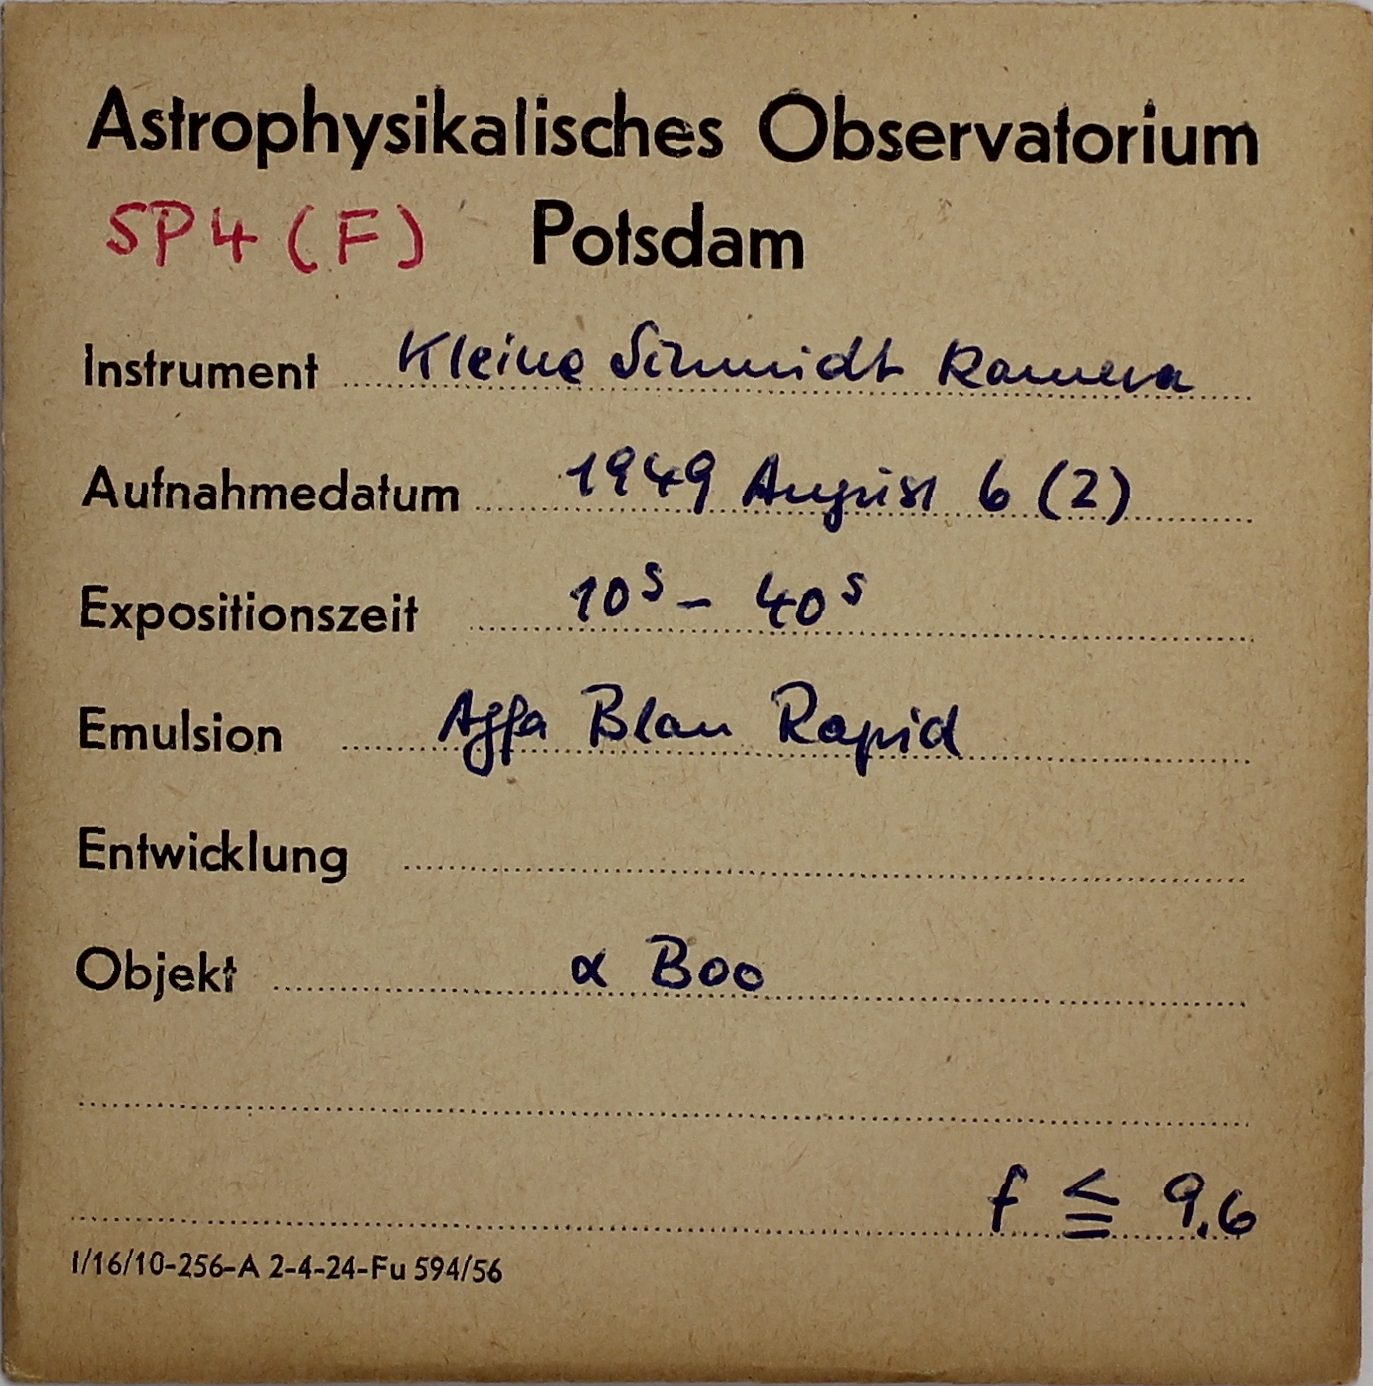 Astrophysikalisches Observatorium
SP4 (F) Potsdam
Instrument Kleine Schmidt Kamera
Aufnahmedatum 1949 August 6 (2)
Expositionszeit 10ˢ – 40ˢ
Emulsion Agfa Blau Rapid
Entwicklung
Objekt α Boo
f ≦ 9.6
I/16/10-256-A 2-4-24-Fu 594/56